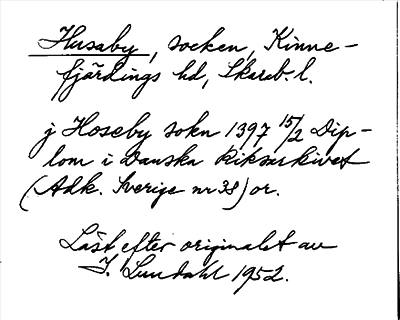 Husaby, socken, Kinne-
fjärdings hd, Skarab. l.
j Hoseby sokn 1397 15/2 Dip-
lom i Danska Riksarkivet
(Adk. Sverige nr 38) or.
Läst efter originalet av
I. Lundahl 1952.